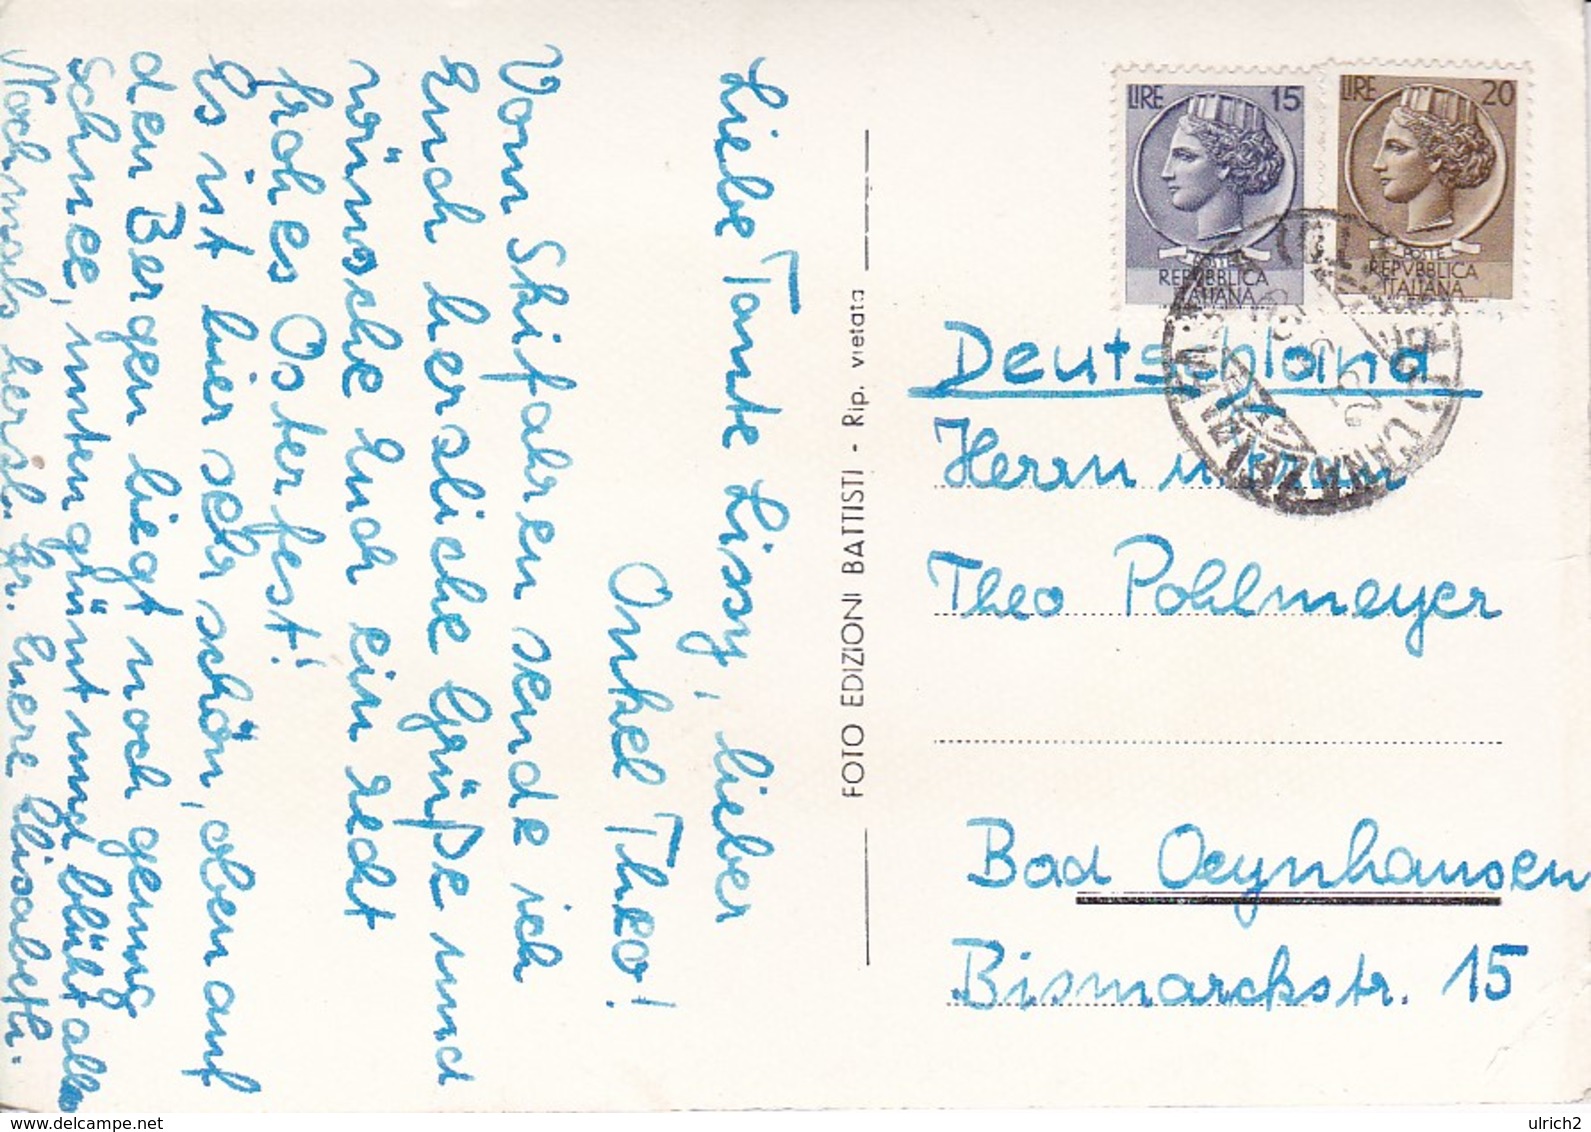 Liebe Tante Lissy, lieber
Onkel Theo!
Vom Skifahren sende ich
Euch herzliche Grüße und
wünsche Euch ein recht
frohes Osterfest!
Es ist hier sehr schön, oben auf
den Bergen liegt noch genug
Schnee, unten grünt und blüht alles
Nochmals herzl. Gr. Euere Elisabeth.
FOTO EDIZIONI BATTISTI - Rip. vietata
LIRE 15
POSTE
REPVBBLICA
ITALIANA
LIRE 20
POSTE
REPVBBLICA
ITALIANA
Deutschland
Herrn u. Frau
Theo Pohlmeyer
Bad Oeynhausen
Bismarckstr. 15
delcampe.net
ulrich2